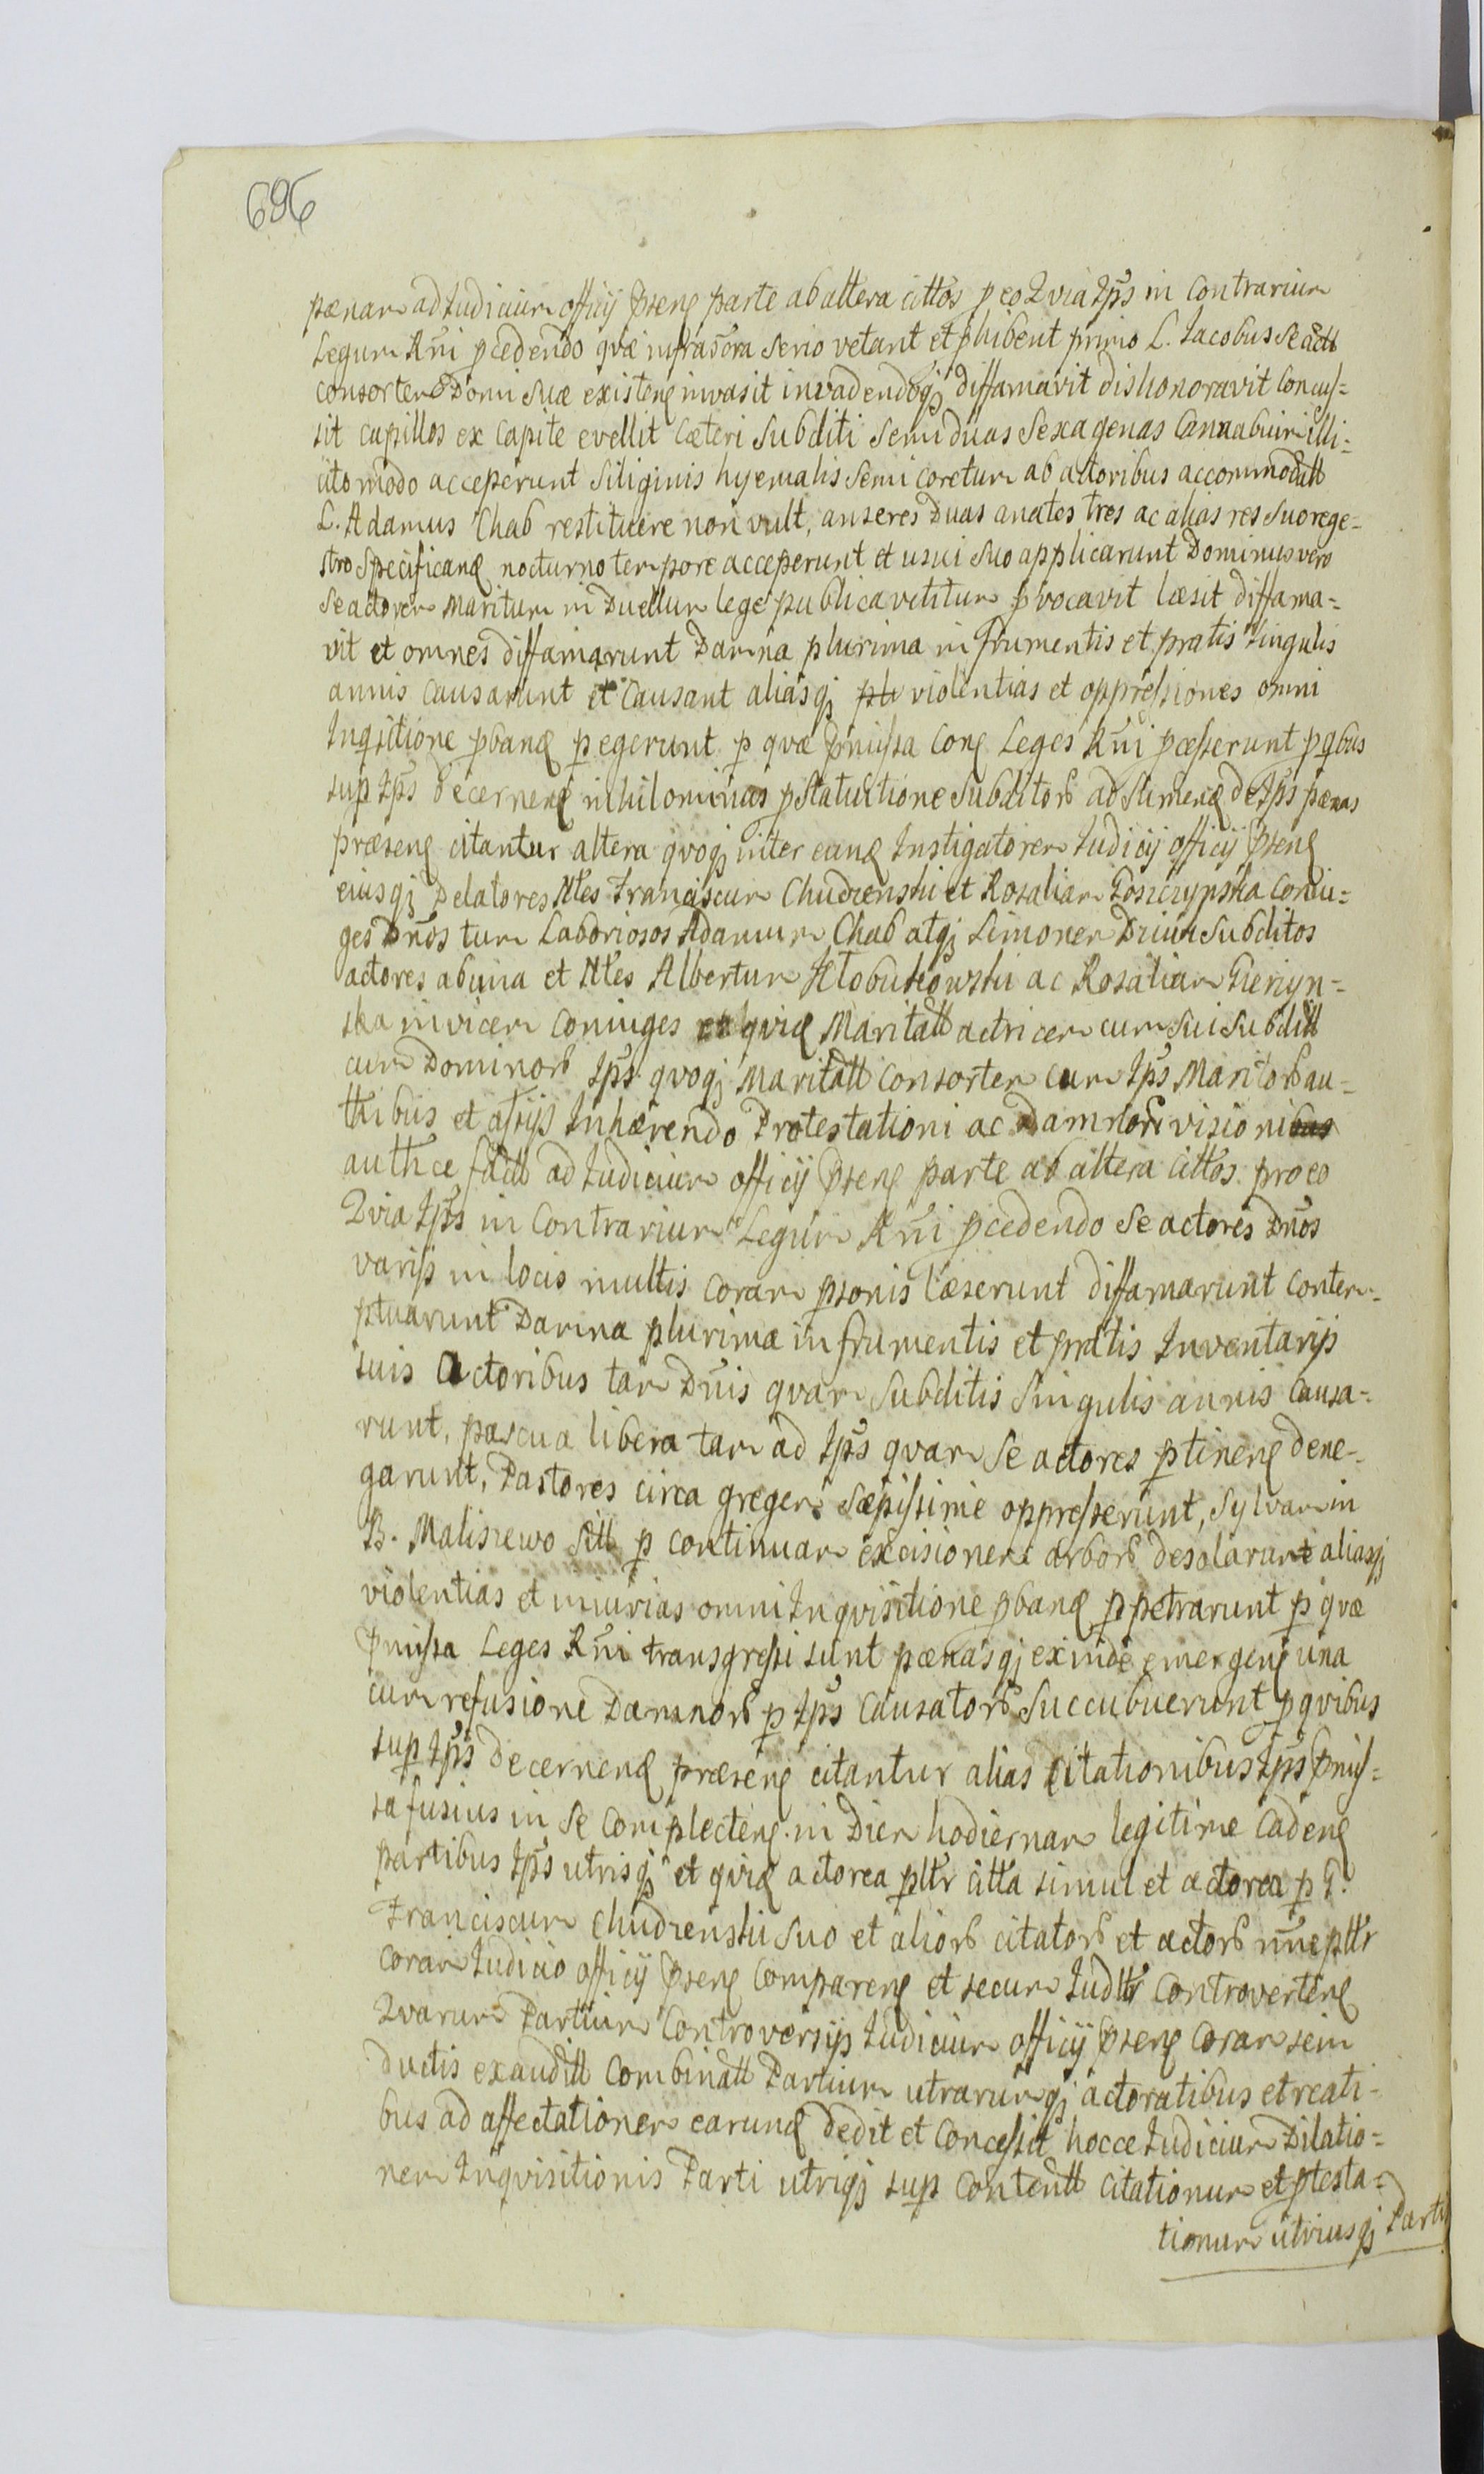 696
pænam ad Judicium officij pseng parte ab altera cittos p eo Qvia Ips in Contrarium
Legum Rñi pcedendo qvæ infrascra serio vetant et phibent primo L. Iacobus se actt
consortem Domi suæ existeng invasit invadendoqj diffamavit dishonoravit Concus=
sit capillos ex Capite evellit Cæteri Subditi Semi duas Sexagenas Cannabium illi=
cito modo acceperunt Siliginis hyemalis Semi coretum ab actoribus accommodatt
L. Adamus Chab restituere non vult, anseres Duas anates tres ac alias res Suo rege=
stro Specificand nocturno tempore acceperunt et usui Suo applicarunt Dominus vero
Se actorem Maritum in Duellum lege publica vetitum pvocavit læsit diffama=
vit et omnes diffamarunt Damna plurima in frumentis et pratis Singulis
annis Causarunt et Causant aliasqj violentias et oppressiones omni
Inqsitione pband pegerunt p qvæ pmissa Cong Leges Rñi pcesserunt pqbus
sup Ips decernend nihilominus p Statuitione Subditorb ad Sumend de Ips pænas
præseng citantur altera qvoqj inter eand Instigatorem Iudicij officij pseng
eiusqj Delatores Nles Franciscum Chudzenski et Rosaliam Gosiczynska Coniu=
ges Dños tum Laboriosos Adamum Chab atqj Simonem Subditos
actores ab una et Nles Albertum Kłobukowski ac Rosaliam
ska invicem Coniuges qvid Maritatt actricem cum Sui Subditt
cum Dominorb Ips qvoqj Maritatt Consortem cum Ips Maritorb au=
ttibus et assijs Inhærendo Protestationi ac Damnorb visioni
authce fact ad Iudicium officij pseng parte ab altera cittos pro eo
Qvia Ips in Contrarium Legum Rñi pcedendo Se actores Dños
varijs in locis multis Coram psonis læserunt diffamarunt Contem=
ptuarunt Damna plurima in frumentis et pratis Inventarijs
suis Actoribus tam Dñis qvam Subditis Singulis annis Causa=
runt, pascua libera tam ad Ips qvam Se actores ptineng dene=
garunt, Pastores circa gregem sæpissime oppresserunt, Sylvam in
B. Maliszewo Sitt p Continuam excisionem arborb desolarunt aliasqj
violentias et iniurias omni Inqvisitione pband ppetrarunt p qvæ
pmissa Leges Rñi transgressi sunt pænasqj exinde emergeng una
cum refusione Damnorb p Ips Causatorb Succubuerunt pqvibus
sup Ips decernend præseng citantur alias Citationibus Ips pmis=
sa fusius in Se Complecteng in Diem hodiernam legitime Cadeng
partibus Ips utrisqj et qvid actorea pltr citta simul et actorea p G.
Franciscum Chudzenski Suo et aliorb citatorb et actorb nñe pltr
coram Iudicio officij pseng Compareng et secum Iudltr Controverteng
Qvarum Partium Controversijs Iudicium officij pseng Coram sein
ductis exauditt Combinatt Partium utrarumqj actoratibus et reati=
bus ad affectationem earund Dedit et Concessit hocce Iudicium Dilatio=
nem Inqvisitionis Parti utriqj sup Contentt Citationum et ptesta=
tionum utriusqj Partis